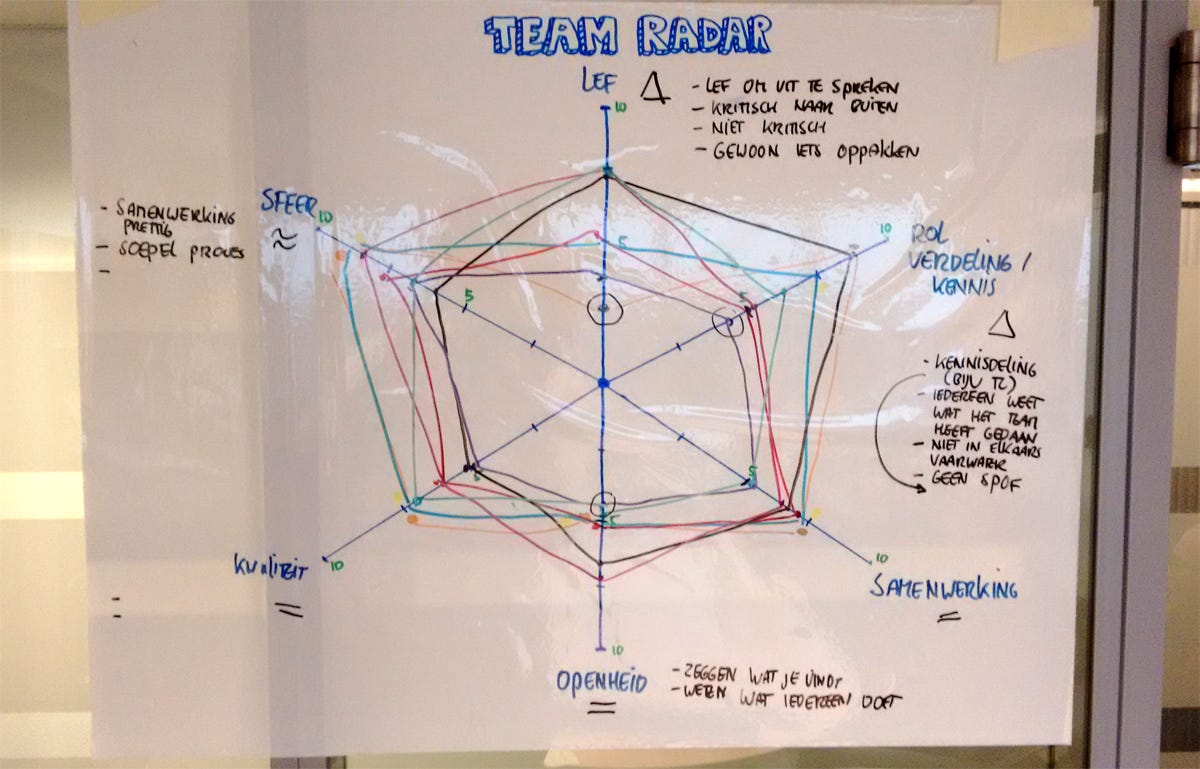 TEAM RADAR
LEF Δ
- LEF OM UIT TE SPREKEN
- KRITISCH NAAR BUITEN
- NIET KRITISCH
- GEWOON IETS OPPAKKEN
10
SFEER
10
≈
- SAMENWERKING
PRETTIG
- SOEPEL PROCES
-
10
ROL
VERDELING /
KENNIS
Δ
- KENNISDELING
(BIJV TL)
- IEDEREEN WEET
WAT HET TEAM
HEEFT GEDAAN
- NIET IN ELKAARS
VAARWATER
- GEEN SPOF
5
5
5
5
5
KWALITEIT
10
=
-
-
10
SAMENWERKING
=
10
OPENHEID
=
- ZEGGEN WAT JE VINDT
- WETEN WAT IEDEREEN DOET